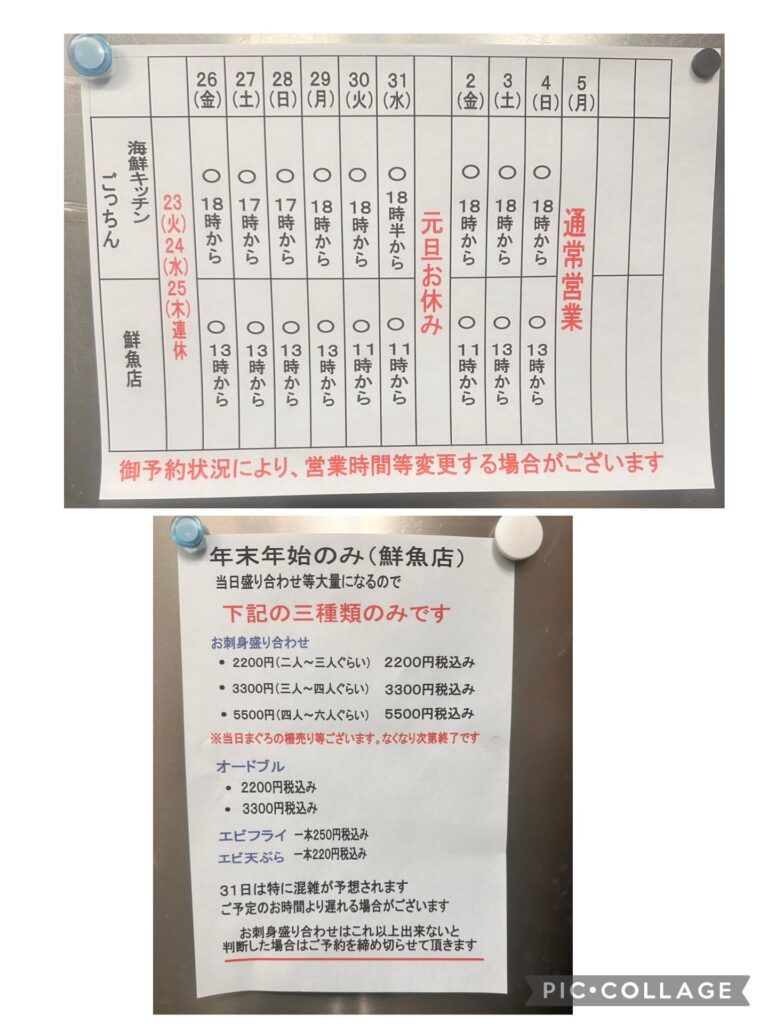 26 27 28 29 30 31 2 3 4 5
(金) (土) (日) (月) (火) (水) (金) (土) (日) (月)
海鮮キッチン
ごっちん
23(火)24(水)25(木)連休
○ 18時から
○ 17時から
○ 17時から
○ 18時から
○ 18時から
○ 18時半から
元旦お休み
○ 18時から
○ 18時から
○ 18時から
通常営業
鮮魚店
○ 13時から
○ 13時から
○ 13時から
○ 13時から
○ 11時から
○ 11時から
○ 11時から
○ 13時から
○ 13時から
御予約状況により、営業時間等変更する場合がございます
年末年始のみ(鮮魚店)
当日盛り合わせ等大量になるので
下記の三種類のみです
お刺身盛り合わせ
• 2200円(二人~三人ぐらい) 2200円税込み
• 3300円(三人~四人ぐらい) 3300円税込み
• 5500円(四人~六人ぐらい) 5500円税込み
※当日まぐろの柵売り等ございます。なくなり次第終了です
オードブル
• 2200円税込み
• 3300円税込み
エビフライ 一本250円税込み
エビ天ぷら 一本220円税込み
31日は特に混雑が予想されます
ご予定のお時間より遅れる場合がございます
お刺身盛り合わせはこれ以上出来ないと
判断した場合はご予約を締め切らせて頂きます
PIC•COLLAGE